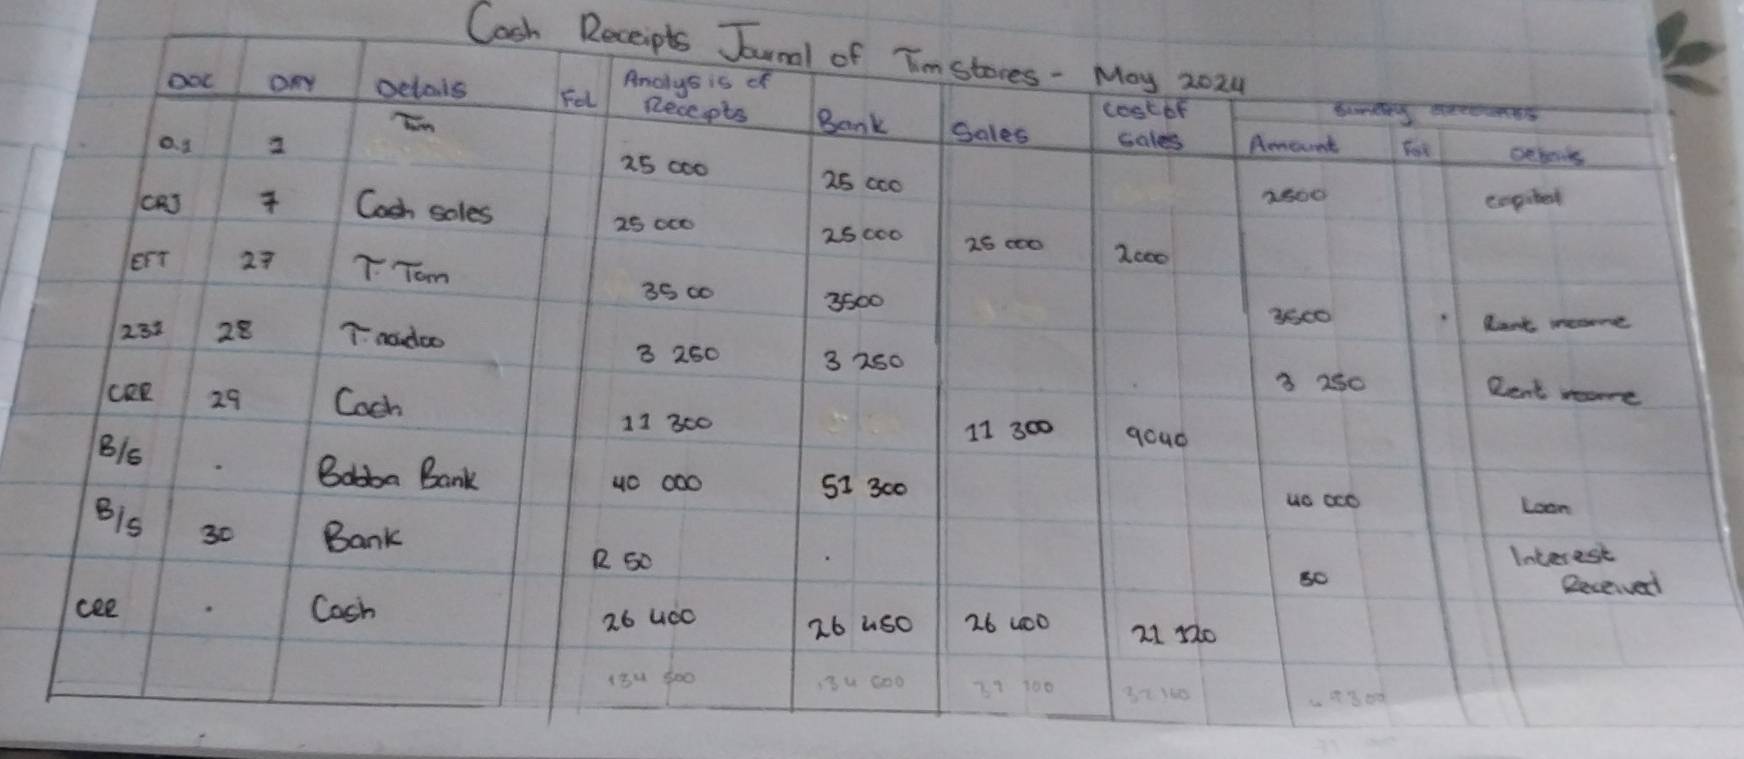 Cash Receipts Journal of Tim Stores - May 2024
DOC DAY Details Fol Analysis of Receipts Bank Sales Cost of Sales Sundry accounts
Amount Fol Details
0.1 1 Tim 25 000 25 000 2500 capital
CRJ 7 Cash sales 25 000 25 000 25 000 2000
EFT 27 T. Tom 3500 3500 3500 Rent income
231 28 T. naidoo 3 250 3 250 3 250 Rent income
CRR 29 Cash 11 300 11 300 9040
B/S . Bobba Bank 40 000 51 300 40 000 Loan
B/S 30 Bank R 50 . 50 Interest Received
CRR . Cash 26 400 26 450 26 400 21 120
134 500 134 500 37 700 32 160